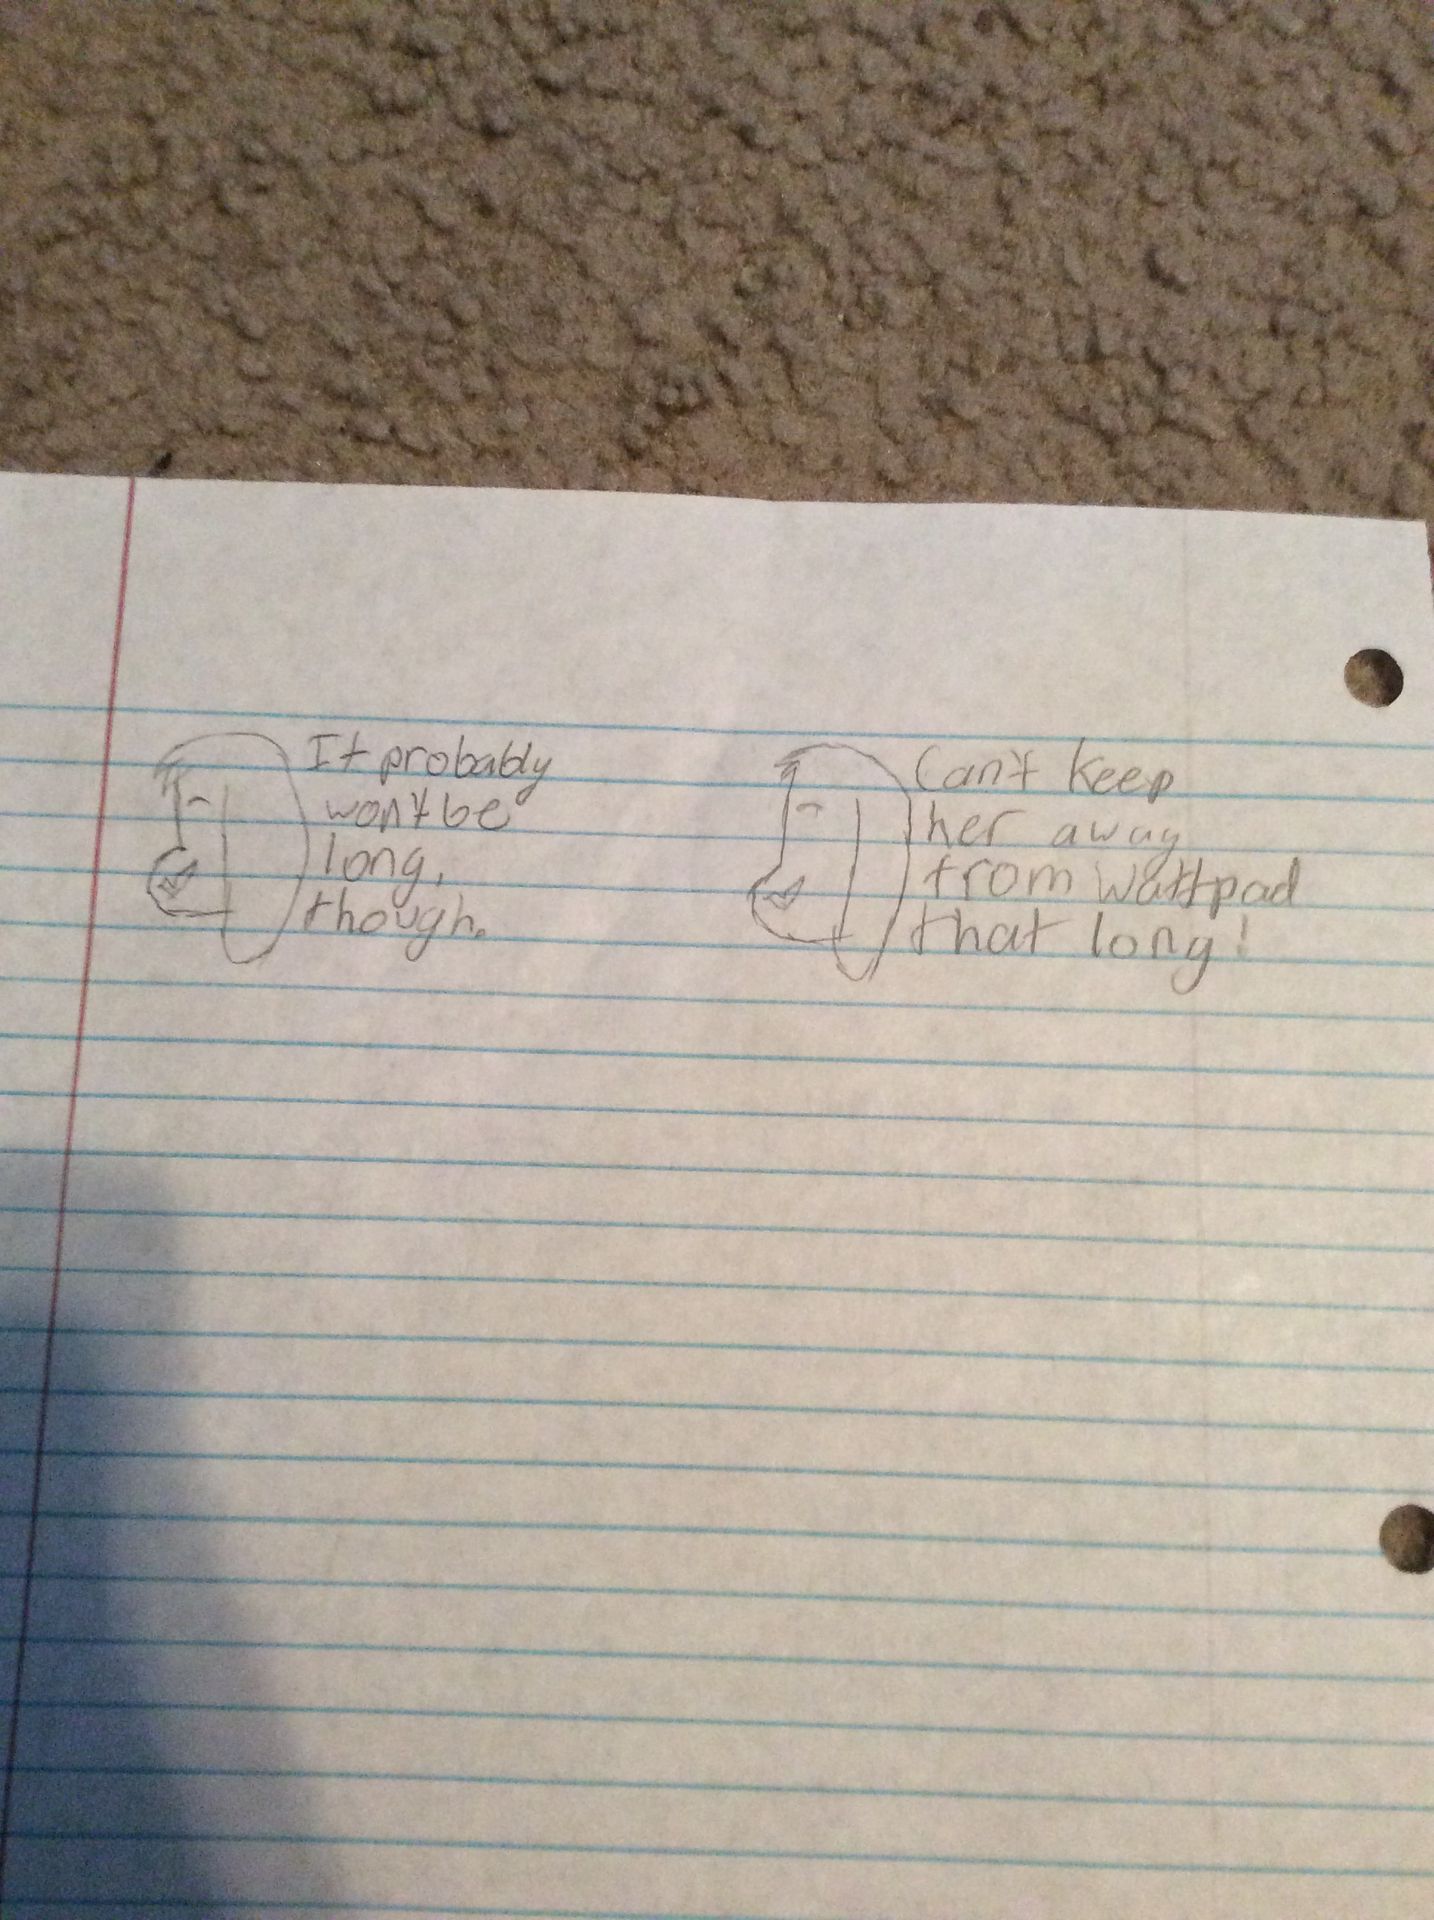 It probably
won't be
long,
though.
Can't keep
her away
from wattpad
that long!